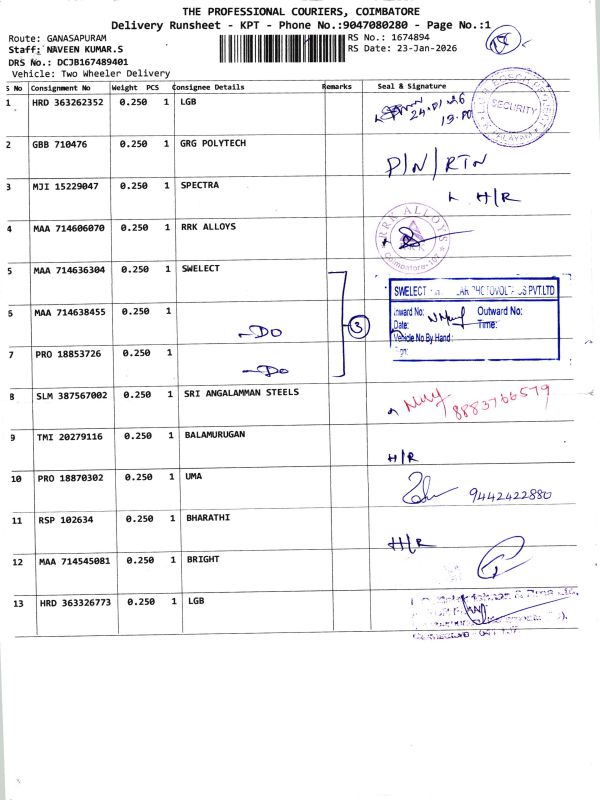 THE PROFESSIONAL COURIERS, COIMBATORE
Delivery Runsheet - KPT - Phone No.:9047080280 - Page No.:1
Route: GANASAPURAM
RS No.: 1674894
Staff: NAVEEN KUMAR.S
RS Date: 23-Jan-2026
DRS No.: DCJB167489401
Vehicle: Two Wheeler Delivery
S No Consignment No Weight PCS Consignee Details Remarks Seal & Signature
1 HRD 363262352 0.250 1 LGB
SECURITY
2 GBB 710476 0.250 1 GRG POLYTECH P/N/RTN
3 MJI 15229047 0.250 1 SPECTRA H/R
4 MAA 714606070 0.250 1 RRK ALLOYS
RRK ALLOYS
Coimbatore-107
5 MAA 714636304 0.250 1 SWELECT
6 MAA 714638455 0.250 1 -DO
3
7 PRO 18853726 0.250 1 -DO
SWELECT PHOTOVOLTAICS PVT.LTD
Inward No: Outward No:
Date: Time:
Vehicle No By Hand:
Sign:
8 SLM 387567002 0.250 1 SRI ANGALAMMAN STEELS 8883766579
9 TMI 20279116 0.250 1 BALAMURUGAN H/R
10 PRO 18870302 0.250 1 UMA 9442422880
11 RSP 102634 0.250 1 BHARATHI H/R
12 MAA 714545081 0.250 1 BRIGHT
13 HRD 363326773 0.250 1 LGB